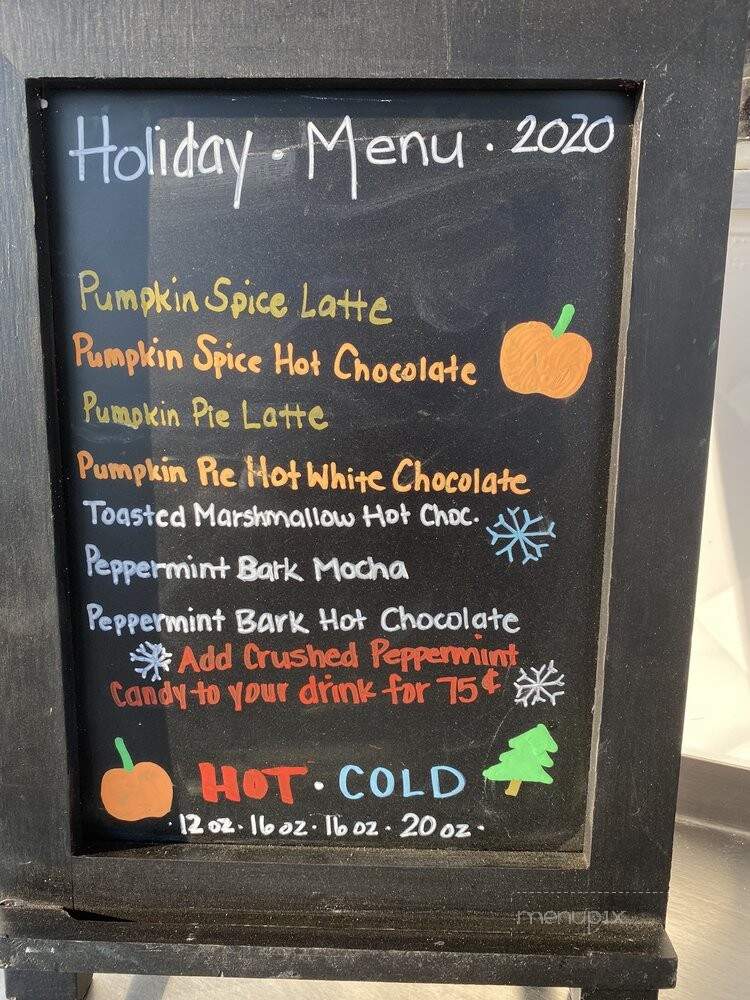 Holiday · Menu · 2020
Pumpkin Spice Latte
Pumpkin Spice Hot Chocolate
Pumpkin Pie Latte
Pumpkin Pie Hot White Chocolate
Toasted Marshmallow Hot Choc.
Peppermint Bark Mocha
Peppermint Bark Hot Chocolate
Add Crushed Peppermint
Candy to your drink for 75¢
HOT · COLD
· 12 oz · 16 oz · 16 oz · 20 oz ·
menupix